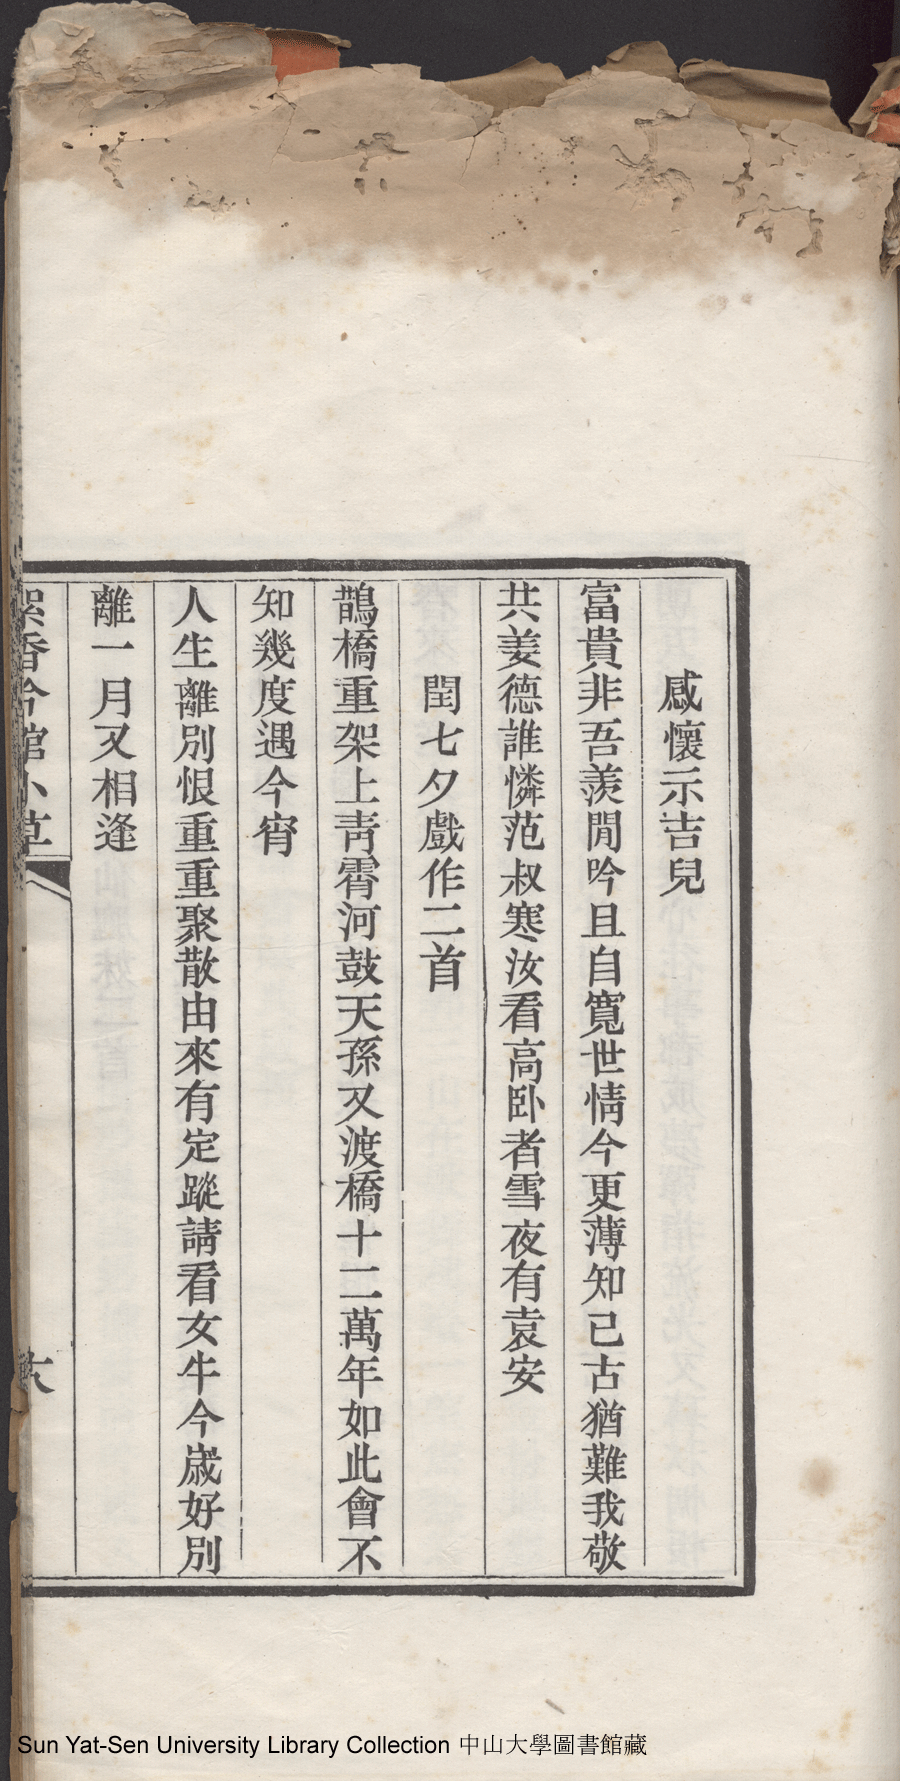 感懷示吉兒
富貴非吾羨閒吟且自寬世情今更薄知己古猶難我敬
共姜德誰憐范叔寒汝看高卧者雪夜有袁安
閏七夕戲作二首
鵲橋重架上靑霄河鼓天孫又渡橋十二萬年如此會不
知幾度遇今宵
人生離別恨重重聚散由來有定蹤請看女牛今歲好別
離一月又相逢
絮香吟館小草
六
Sun Yat-Sen University Library Collection 中山大學圖書館藏